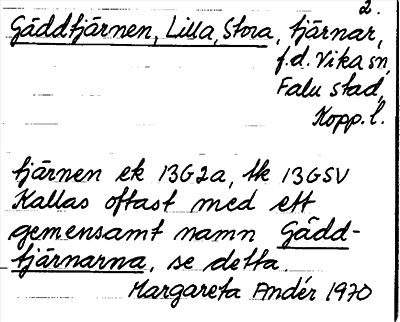 2.
Gäddtjärnen, Lilla, Stora, tjärnar,
f.d. Vika sn,
Falu stad,
Kopp. l.
tjärnen ek 13G2a, tk 13GSV
Kallas oftast med ett
gemensamt namn Gädd-
tjärnarna, se detta.
Margareta Andér 1970